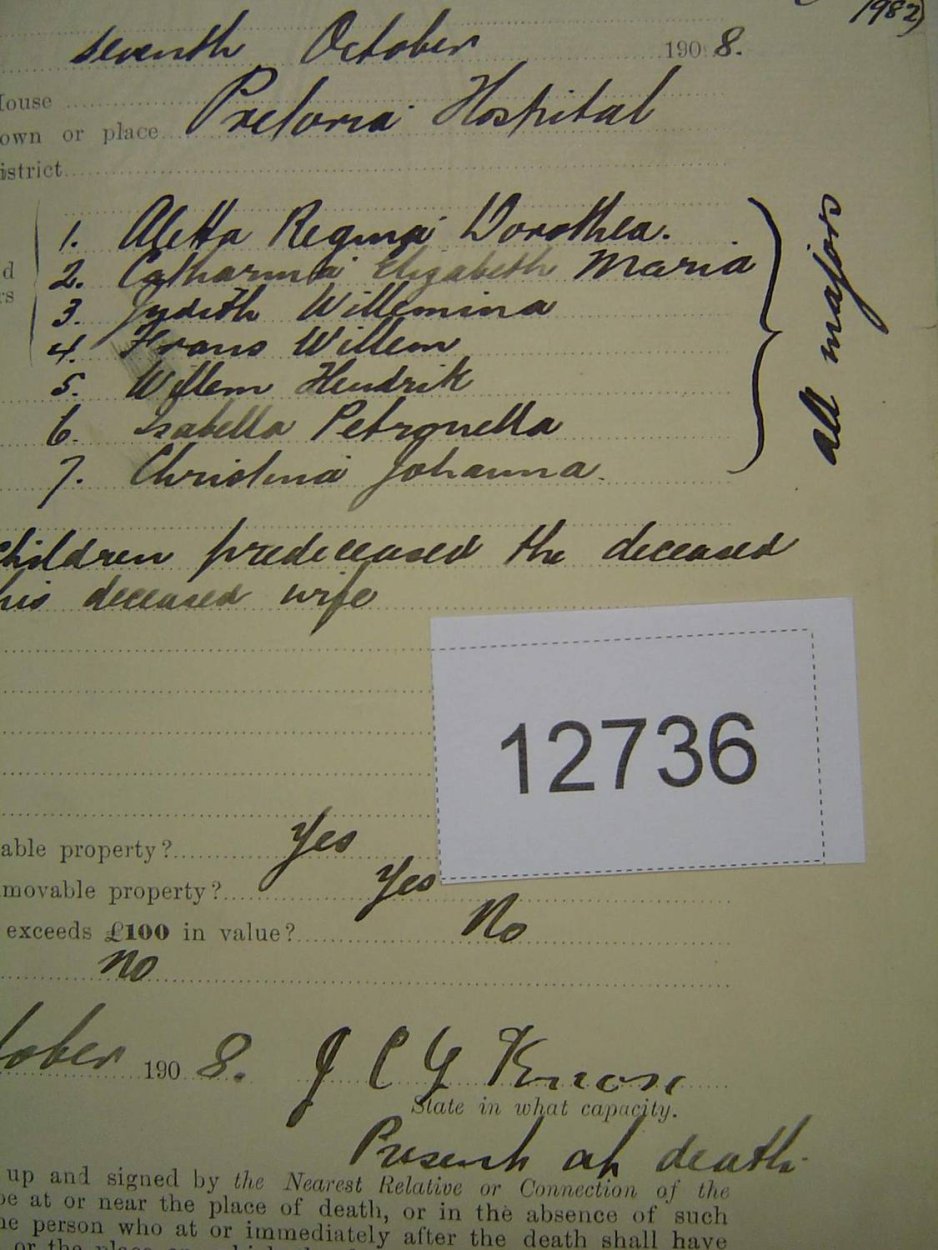 1982)
seventh October 1908.
House
own or place Pretoria Hospital
istrict
1. Aletta Regina Dorothea.
d 2. Catharina Elizabeth Maria
rs 3. Judith Willemina
4. Frans Willem
5. Willem Hendrik
6. Isabella Petronella
7. Christina Johanna.
all majors
children predeceased the deceased
his deceased wife
12736
able property? Yes
movable property? Yes
exceeds £100 in value? No
no
tober 1908. J C G
State in what capacity.
Present at death.
up and signed by the Nearest Relative or Connection of the
be at or near the place of death, or in the absence of such
ne person who at or immediately after the death shall have
or the place